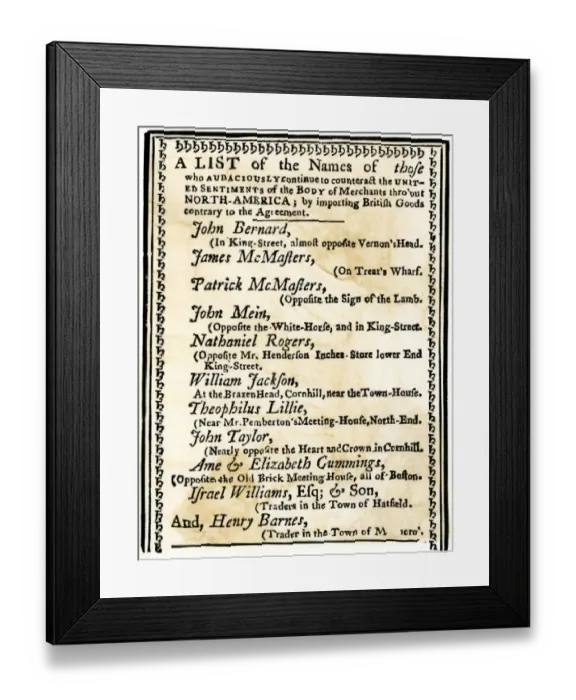 A LIST of the Names of thoſe
who AUDACIOUSLY continue to counteract the UNIT-
ED SENTIMENTS of the BODY of Merchants thro'out
NORTH-AMERICA; by importing Britiſh Goods
contrary to the Agreement.
John Bernard,
(In King-Street, almoſt oppoſite Vernon's Head.
James McMaſters,
(On Treat's Wharf.
Patrick McMaſters,
(Oppoſite the Sign of the Lamb.
John Mein,
(Oppoſite the White-Horſe, and in King-Street.
Nathaniel Rogers,
(Oppoſite Mr. Henderſon Inches Store lower End
King-Street.
William Jackſon,
At the Brazen Head, Cornhill, near the Town-Houſe.
Theophilus Lillie,
(Near Mr. Pemberton's Meeting-Houſe, North-End.
John Taylor,
(Nearly oppoſite the Heart and Crown in Cornhill.
Ame & Elizabeth Cummings,
(Oppoſite the Old Brick Meeting Houſe, all of Boſton.
Iſrael Williams, Eſq; & Son,
(Traders in the Town of Hatfield.
And, Henry Barnes,
(Trader in the Town of M